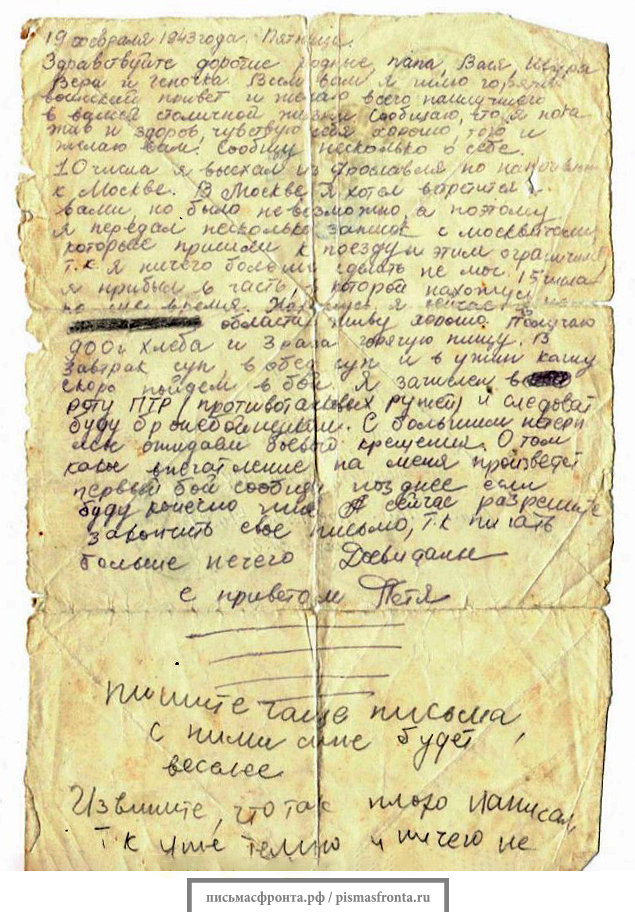 19 февраля 1943 года. Пятница.
Здравствуйте дорогие родные, папа, Вася, Шура
Вера и Геночка. Всем вам я шлю горячий
воинский привет и желаю всего наилучшего
в вашей столичной жизни. Сообщаю, что я пока
жив и здоров, чувствую себя хорошо, того и
желаю вам. Сообщу несколько о себе.
10 числа я выехал из Ярославля по направлению
к Москве. В Москве я хотел встретится с
вами, но было невозможно, а поэтому
я передал несколько записок с москвичами,
которые пришли к поезду и этим ограничился
т.к я ничего больше сделать не мог. 15 числа
я прибыл в часть, в которой нахожусь
по сие время. Нахожусь я сейчас
области, живу хорошо. Получаю
900 г хлеба и 3 раза горячую пищу. В
завтрак суп, в обед суп и в ужин кашу
скоро пойдем в бой. Я зачислен в
роту ПТР (противотанковых ружей) и следоват
буду бронебойщиком. С большим нетерп
ием ожидаем боевого крещения. О том
какое впечатление на меня произведет
первый бой сообщу позднее если
буду конечно жив. А сейчас разрешите
закончить свое письмо, т.к писать
больше нечего Досвидания
с приветом Петя
пишите чаще письма,
с ними мне будет
веселее
Извините, что так плохо написал
т.к уже темно и ничего не
письмасфронта.рф / pismasfronta.ru